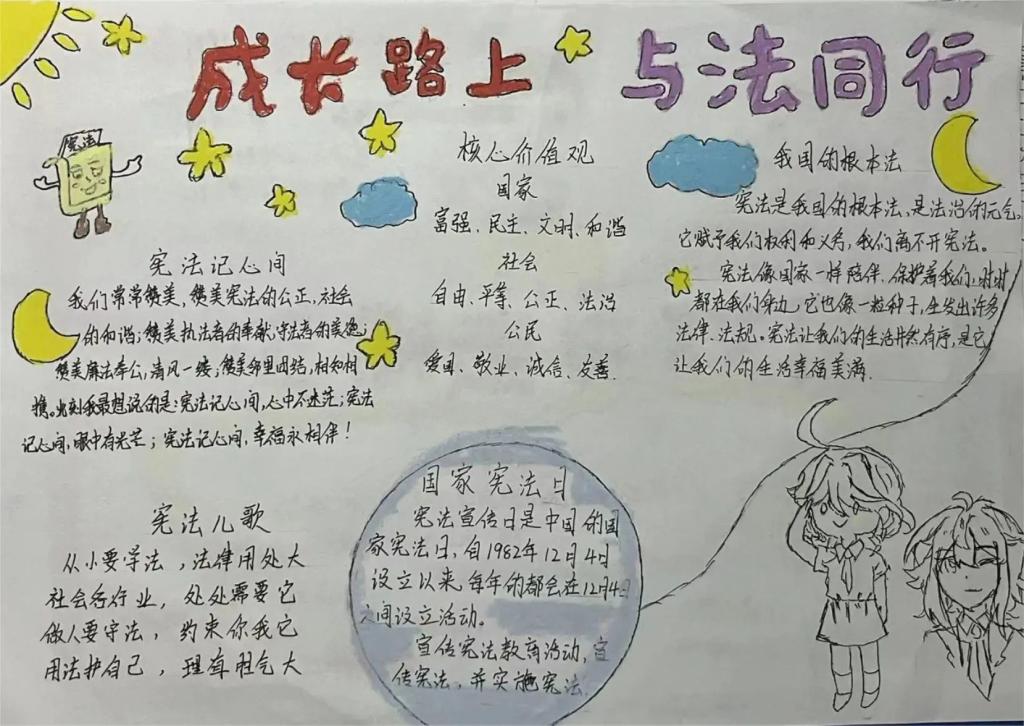 成长路上 与法同行
宪法
宪法记心间
我们常常赞美,赞美宪法的公正,社会
的和谐;赞美执法者的奉献,守法者的美德;
赞美廉法奉公,清风一缕;赞美邻里团结,相知相
携。此刻我最想说的是:宪法记心间,心中不迷茫;宪法
记心间,眼中有光芒;宪法记心间,幸福永相伴!
核心价值观
国家
富强、民主、文明、和谐
社会
自由、平等、公正、法治
公民
爱国、敬业、诚信、友善.
我国的根本法
宪法是我国的根本法、是法治的元气。
它赋予我们权利和义务,我们离不开宪法。
宪法像国家一样陪伴、保护着我们、时时
都在我们身边,它也像一粒种子,生发出许多
法律、法规。宪法让我们的生活井然有序,是它
让我们的生活幸福美满.
宪法儿歌
从小要学法,法律用处大
社会各行业,处处需要它
做人要守法,约束你我它
用法护自己,理直胆气大
国家宪法日
宪法宣传日是中国的国
家宪法日,自1982年12月4日
设立以来,每年的都会在12月4日
之间设立活动。
宣传宪法教育活动,宣
传宪法,并实施宪法.